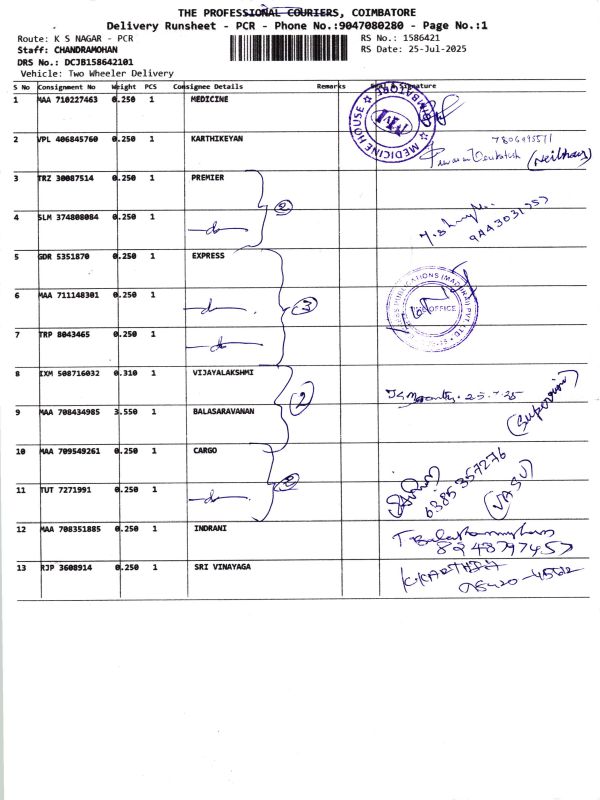 THE PROFESSIONAL COURIERS, COIMBATORE
Delivery Runsheet - PCR - Phone No.:9047080280 - Page No.:1
Route: K S NAGAR - PCR
RS No.: 1586421
Staff: CHANDRAMOHAN
RS Date: 25-Jul-2025
DRS No.: DCJB158642101
Vehicle: Two Wheeler Delivery
S No Consignment No Weight PCS Consignee Details Remarks Seal & Signature
1 MAA 710227463 0.250 1 MEDICINE
MEDICINE HOUSE
2 VPL 406845760 0.250 1 KARTHIKEYAN
7806995511
3 TRZ 30087514 0.250 1 PREMIER
2
4 SLM 374808084 0.250 1 -do-
5 GDR 5351870 0.250 1 EXPRESS
6 MAA 711148301 0.250 1 -do-
3
7 TRP 8043465 0.250 1 -do-
8 IXM 508716032 0.310 1 VIJAYALAKSHMI
2
9 MAA 708434985 3.550 1 BALASARAVANAN
(Supervisor)
10 MAA 709549261 0.250 1 CARGO
2
6385357276
(VASU)
11 TUT 7271991 0.250 1 -do-
12 MAA 708351885 0.250 1 INDRANI
8248797457
13 RJP 3608914 0.250 1 SRI VINAYAGA